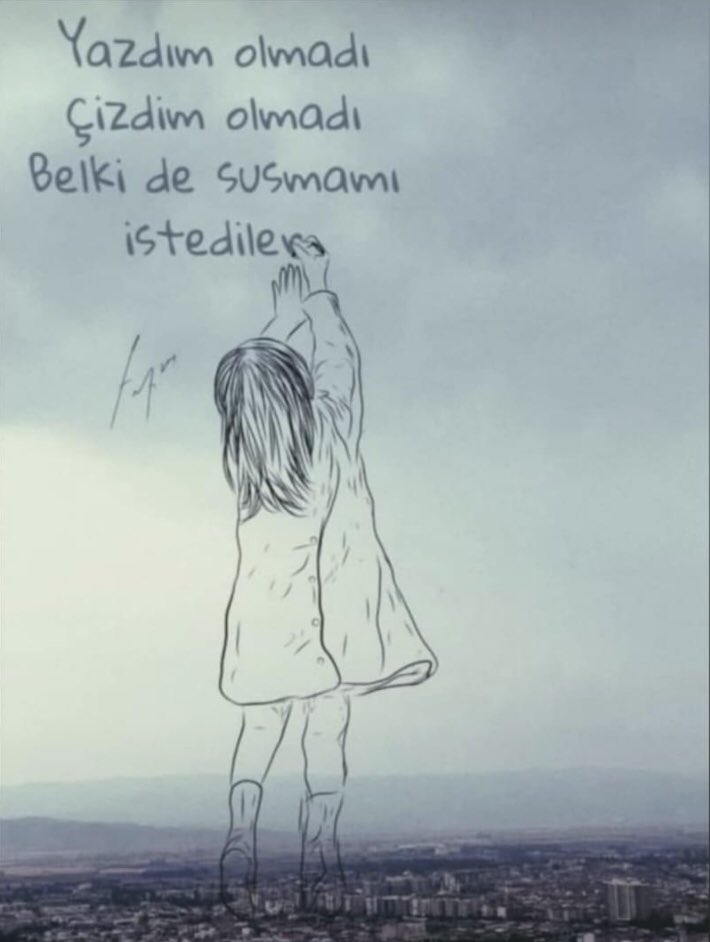 Yazdım olmadı
Çizdim olmadı
Belki de susmamı
istediler